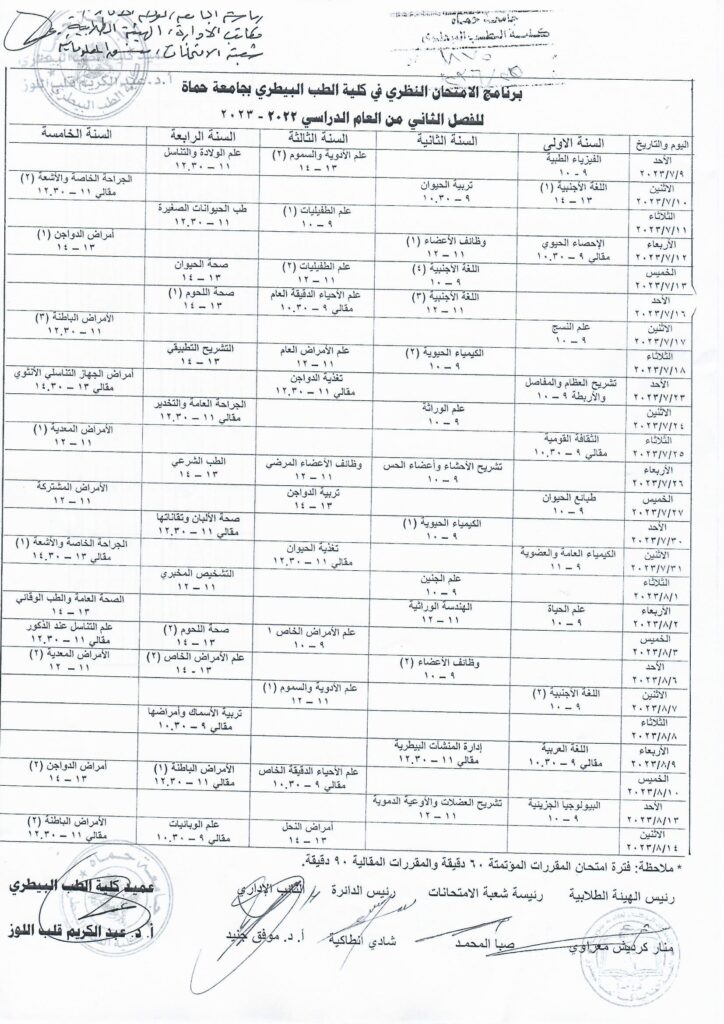 جامعة حماة
كلية الطب البيطري
أ.د. عبد الكريم قلب اللوز
برنامج الامتحان النظري في كلية الطب البيطري بجامعة حماة
للفصل الثاني من العام الدراسي ٢٠٢٢ - ٢٠٢٣
اليوم والتاريخ السنة الاولى السنة الثانية السنة الثالثة السنة الرابعة السنة الخامسة
الأحد الفيزياء الطبية علم الأدوية والسموم (٢) علم الولادة والتناسل
٢٠٢٣/٧/٩ ٩ - ١٠ ١٣ – ١٤ ١١ – ١٢.٣٠
الاثنين اللغة الأجنبية (١) تربية الحيوان الجراحة الخاصة والأشعة (٢)
٢٠٢٣/٧/١٠ ١٣ – ١٤ ٩ – ١٠.٣٠ مقالي ١١ – ١٢.٣٠
الثلاثاء علم الطفيليات (١) طب الحيوانات الصغيرة
٢٠٢٣/٧/١١ ٩ – ١٠ ١١ – ١٢.٣٠
الأربعاء الإحصاء الحيوي وظائف الأعضاء (١) أمراض الدواجن (١)
٢٠٢٣/٧/١٢ مقالي ٩ – ١٠.٣٠ ١١ – ١٢ ١٣ – ١٤
الخميس اللغة الأجنبية (٤) علم الطفيليات (٢) صحة الحيوان
٢٠٢٣/٧/١٣ ٩ – ١٠ ١١ – ١٢ ١٣ – ١٤
الأحد اللغة الأجنبية (٣) علم الأحياء الدقيقة العام صحة اللحوم (١)
٢٠٢٣/٧/١٦ ١١ – ١٢ مقالي ٩ – ١٠.٣٠ ١٣ – ١٤
الاثنين علم النسج الأمراض الباطنة (٣)
٢٠٢٣/٧/١٧ ٩ – ١٠ ١١ – ١٢.٣٠
الثلاثاء الكيمياء الحيوية (٢) علم الأمراض العام التشريح التطبيقي
٢٠٢٣/٧/١٨ ٩ – ١٠ ١١ – ١٢ ١٣ – ١٤
الأحد تشريح العظام والمفاصل تغذية الدواجن أمراض الجهاز التناسلي الأنثوي
٢٠٢٣/٧/٢٣ والأربطة ٩ – ١٠ مقالي ١١ – ١٢.٣٠ مقالي ١٣ – ١٤.٣٠
الاثنين علم الوراثة الجراحة العامة والتخدير
٢٠٢٣/٧/٢٤ ٩ – ١٠ مقالي ١١ – ١٢.٣٠
الثلاثاء الثقافة القومية الأمراض المعدية (١)
٢٠٢٣/٧/٢٥ مقالي ٩ – ١٠.٣٠ ١١ – ١٢
الأربعاء تشريح الأحشاء وأعضاء الحس وظائف الأعضاء المرضي الطب الشرعي
٢٠٢٣/٧/٢٦ ٩ – ١٠ ١١ – ١٢ ١٣ – ١٤
الخميس طبائع الحيوان تربية الدواجن الأمراض المشتركة
٢٠٢٣/٧/٢٧ ٩ – ١٠ ١٣ – ١٤ ١١ – ١٢
الأحد الكيمياء الحيوية (١) صحة الألبان وتقاناتها
٢٠٢٣/٧/٣٠ ٩ – ١٠ مقالي ١١ – ١٢.٣٠
الاثنين الكيمياء العامة والعضوية تغذية الحيوان الجراحة الخاصة والأشعة (١)
٢٠٢٣/٧/٣١ ٩ – ١١ مقالي ١١ – ١٢.٣٠ مقالي ١٣ – ١٤.٣٠
الثلاثاء علم الجنين التشخيص المخبري
٢٠٢٣/٨/١ ٩ – ١٠ ١١ – ١٢
الأربعاء علم الحياة الهندسة الوراثية الصحة العامة والطب الوقائي
٢٠٢٣/٨/٢ ٩ – ١٠ ١١ – ١٢ ١٣ – ١٤
الخميس علم الأمراض الخاص ١ صحة اللحوم (٢) علم التناسل عند الذكور
٢٠٢٣/٨/٣ ٩ – ١٠ ١٣ – ١٤ مقالي ١١ – ١٢.٣٠
الأحد وظائف الأعضاء (٢) علم الأمراض الخاص (٢) الأمراض المعدية (٢)
٢٠٢٣/٨/٦ ٩ – ١٠ ١٣ - ١٤ ١١ – ١٢
الاثنين اللغة الأجنبية (٢) علم الأدوية والسموم (١)
٢٠٢٣/٨/٧ ٩ – ١٠ ١١ – ١٢
الثلاثاء تربية الأسماك وأمراضها
٢٠٢٣/٨/٨ مقالي ٩ – ١٠.٣٠
الأربعاء اللغة العربية إدارة المنشآت البيطرية
٢٠٢٣/٨/٩ مقالي ٩ – ١٠.٣٠ مقالي ١١ – ١٢.٣٠
الخميس علم الأحياء الدقيقة الخاص الأمراض الباطنة (١) أمراض الدواجن (٢)
٢٠٢٣/٨/١٠ مقالي ٩ – ١٠.٣٠ مقالي ١١ – ١٢.٣٠ ١٣ – ١٤
الأحد البيولوجيا الجزيئية تشريح العضلات والأوعية الدموية
٢٠٢٣/٨/١٣ ٩ – ١٠ ١١ – ١٢
الاثنين أمراض النحل علم الوبائيات الأمراض الباطنة (٢)
٢٠٢٣/٨/١٤ ١٣ – ١٤ مقالي ٩ – ١٠.٣٠ مقالي ١١ – ١٢.٣٠
* ملاحظة: فترة امتحان المقررات المؤتمتة ٦٠ دقيقة والمقررات المقالية ٩٠ دقيقة.
رئيس الهيئة الطلابية رئيسة شعبة الامتحانات رئيس الدائرة النائب الإداري عميد كلية الطب البيطري
منار كرديش معراوي صبا المحمد شادي أنطاكية أ. د. موفق جنيد أ. د. عبد الكريم قلب اللوز